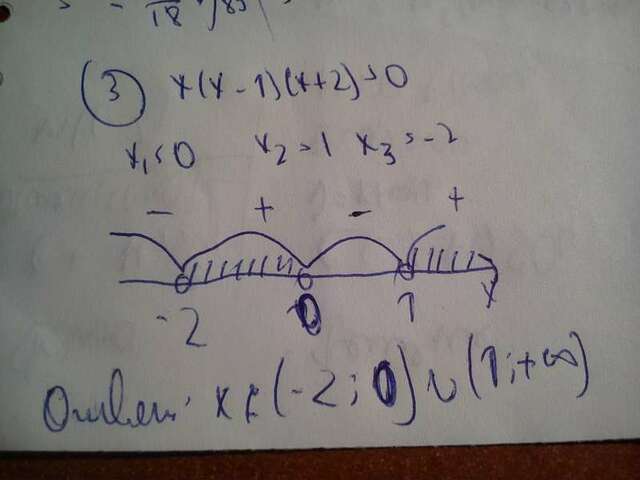 18
3 x(x-1)(x+2)>0
x₁=0 x₂=1 x₃=-2
- + - +
-2 0 1 x
Ответ: x∈(-2;0)∪(1;+∞)